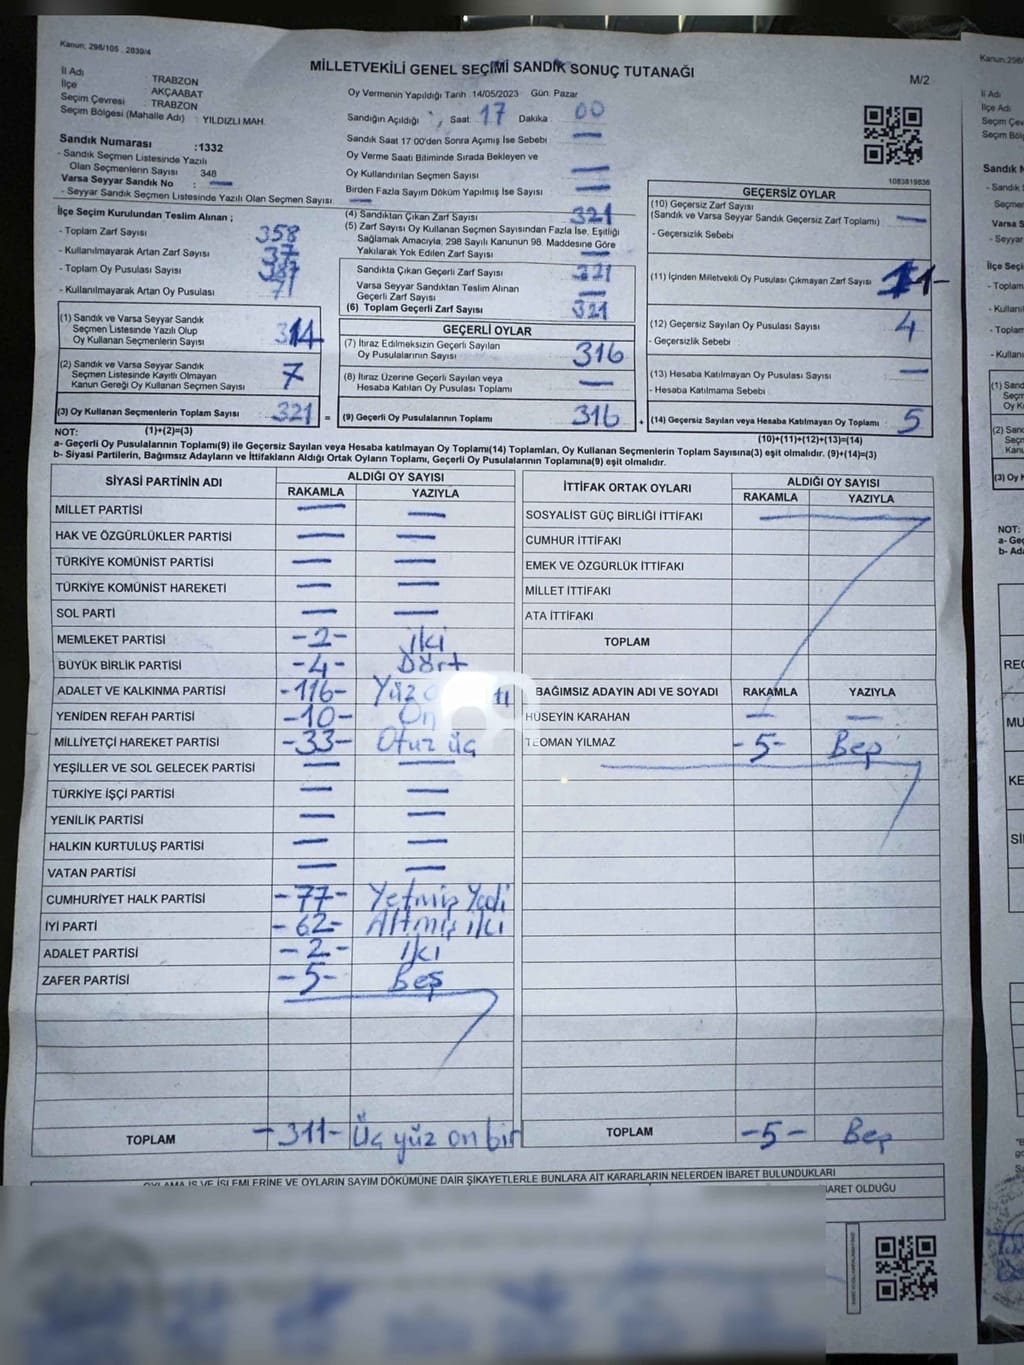 Kanun: 298/105 . 2839/4
MİLLETVEKİLİ GENEL SEÇİMİ SANDIK SONUÇ TUTANAĞI
M/2
İl Adı : TRABZON
İlçe : AKÇAABAT
Seçim Çevresi : TRABZON
Seçim Bölgesi (Mahalle Adı) : YILDIZLI MAH.
Oy Vermenin Yapıldığı Tarih :14/05/2023 Gün: Pazar
Sandığın Açıldığı Saat: 17 Dakika : 00
Sandık Saat 17:00'den Sonra Açılmış İse Sebebi —
Oy Verme Saati Bitiminde Sırada Bekleyen ve
Oy Kullandırılan Seçmen Sayısı —
Birden Fazla Sayım Döküm Yapılmış İse Sayısı —
Sandık Numarası :1332
- Sandık Seçmen Listesinde Yazılı
Olan Seçmenlerin Sayısı 348
Varsa Seyyar Sandık No : —
- Seyyar Sandık Seçmen Listesinde Yazılı Olan Seçmen Sayısı: —
İlçe Seçim Kurulundan Teslim Alınan ;
- Toplam Zarf Sayısı 358
- Kullanılmayarak Artan Zarf Sayısı 37
- Toplam Oy Pusulası Sayısı
- Kullanılmayarak Artan Oy Pusulası 71
(1) Sandık ve Varsa Seyyar Sandık
Seçmen Listesinde Yazılı Olup
Oy Kullanan Seçmenlerin Sayısı 314
(2) Sandık ve Varsa Seyyar Sandık
Seçmen Listesinde Kayıtlı Olmayan
Kanun Gereği Oy Kullanan Seçmen Sayısı 7
(3) Oy Kullanan Seçmenlerin Toplam Sayısı 321 =
(4) Sandıktan Çıkan Zarf Sayısı 321
(5) Zarf Sayısı Oy Kullanan Seçmen Sayısından Fazla İse, Eşitliği
Sağlamak Amacıyla, 298 Sayılı Kanunun 98. Maddesine Göre
Yakılarak Yok Edilen Zarf Sayısı —
Sandıkta Çıkan Geçerli Zarf Sayısı 321
Varsa Seyyar Sandıktan Teslim Alınan
Geçerli Zarf Sayısı —
(6) Toplam Geçerli Zarf Sayısı 321
GEÇERLİ OYLAR
(7) İtiraz Edilmeksizin Geçerli Sayılan
Oy Pusulalarının Sayısı 316
(8) İtiraz Üzerine Geçerli Sayılan veya
Hesaba Katılan Oy Pusulası Toplamı —
(9) Geçerli Oy Pusulalarının Toplamı 316 +
1083819836
GEÇERSİZ OYLAR
(10) Geçersiz Zarf Sayısı
(Sandık ve Varsa Seyyar Sandık Geçersiz Zarf Toplamı) —
- Geçersizlik Sebebi
(11) İçinden Milletvekili Oy Pusulası Çıkmayan Zarf Sayısı
(12) Geçersiz Sayılan Oy Pusulası Sayısı 4
- Geçersizlik Sebebi
(13) Hesaba Katılmayan Oy Pusulası Sayısı —
- Hesaba Katılmama Sebebi
(14) Geçersiz Sayılan veya Hesaba Katılmayan Oy Toplamı 5
NOT: (1)+(2)=(3)
(10)+(11)+(12)+(13)=(14)
a- Geçerli Oy Pusulalarının Toplamı(9) ile Geçersiz Sayılan veya Hesaba katılmayan Oy Toplamı(14) Toplamları, Oy Kullanan Seçmenlerin Toplam Sayısına(3) eşit olmalıdır. (9)+(14)=(3)
b- Siyasi Partilerin, Bağımsız Adayların ve İttifakların Aldığı Ortak Oyların Toplamı, Geçerli Oy Pusulalarının Toplamına(9) eşit olmalıdır.
SİYASİ PARTİNİN ADI ALDIĞI OY SAYISI
RAKAMLA YAZIYLA
MİLLET PARTİSİ — —
HAK VE ÖZGÜRLÜKLER PARTİSİ — —
TÜRKİYE KOMÜNİST PARTİSİ — —
TÜRKİYE KOMÜNİST HAREKETİ — —
SOL PARTİ — —
MEMLEKET PARTİSİ -2- iki
BÜYÜK BİRLİK PARTİSİ -4- Dört
ADALET VE KALKINMA PARTİSİ -116- Yüz
YENİDEN REFAH PARTİSİ -10- On
MİLLİYETÇİ HAREKET PARTİSİ -33- Otuz üç
YEŞİLLER VE SOL GELECEK PARTİSİ — —
TÜRKİYE İŞÇİ PARTİSİ — —
YENİLİK PARTİSİ — —
HALKIN KURTULUŞ PARTİSİ — —
VATAN PARTİSİ — —
CUMHURİYET HALK PARTİSİ -77- Yetmiş Yedi
İYİ PARTİ -62- Altmış iki
ADALET PARTİSİ -2- iki
ZAFER PARTİSİ -5- Beş
TOPLAM -311- Üç yüz on bir
İTTİFAK ORTAK OYLARI ALDIĞI OY SAYISI
RAKAMLA YAZIYLA
SOSYALİST GÜÇ BİRLİĞİ İTTİFAKI
CUMHUR İTTİFAKI
EMEK VE ÖZGÜRLÜK İTTİFAKI
MİLLET İTTİFAKI
ATA İTTİFAKI
TOPLAM
BAĞIMSIZ ADAYIN ADI VE SOYADI RAKAMLA YAZIYLA
HÜSEYİN KARAHAN — —
TEOMAN YILMAZ -5- Beş
TOPLAM -5- Beş
OYLAMA İŞ VE İŞLEMLERİNE VE OYLARIN SAYIM DÖKÜMÜNE DAİR ŞİKAYETLERLE BUNLARA AİT KARARLARIN NELERDEN İBARET BULUNDUKLARI
OLDUĞU